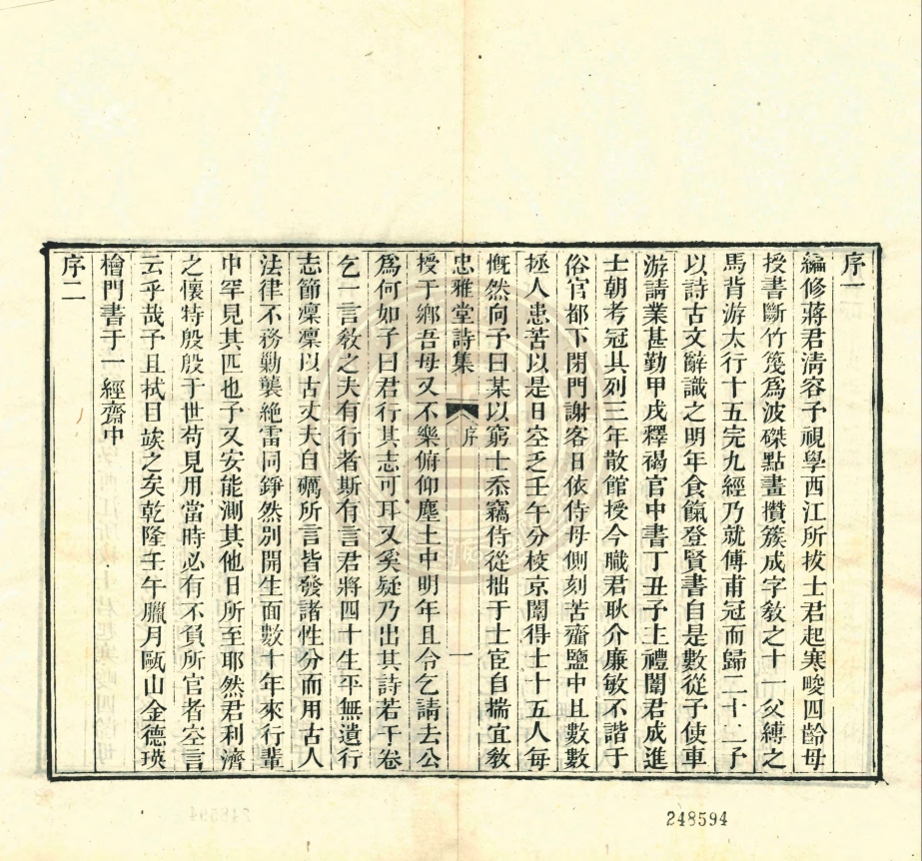 序一
編修蔣君淸容予視學西江所拔士君起寒畯四齡母
授書斷竹篾爲波磔點畫攢簇成字敎之十一父縛之
馬背游太行十五完九經乃就傅甫冠而歸二十二予
以詩古文辭識之明年食餼登賢書自是數從予使車
游請業甚勤甲戌釋褐官中書丁丑予主禮闈君成進
士朝考冠其列三年散館授今職君耿介廉敏不諧于
俗官都下閉門謝客日依侍母側刻苦虀鹽中且數數
拯人患苦以是日空乏壬午分校京闈得士十五人每
慨然向予曰某以窮士忝竊侍從拙于士宦自揣宜敎
忠雅堂詩集
序
一
授于鄉吾母又不樂俯仰塵土中明年且令乞請去公
爲何如予曰君行其志可耳又奚疑乃出其詩若干卷
乞一言敎之夫有行者斯有言君將四十生平無遺行
志節凜凜以古丈夫自礪所言皆發諸性分而用古人
法律不務勦襲絶雷同錚然別開生面數十年來行輩
中罕見其匹也予又安能測其他日所至耶然君利濟
之懷特殷殷于世苟見用當時必有不負所官者空言
云乎哉予且拭目竢之矣乾隆壬午臘月甌山金德瑛
檜門書于一經齋中
序二
248594